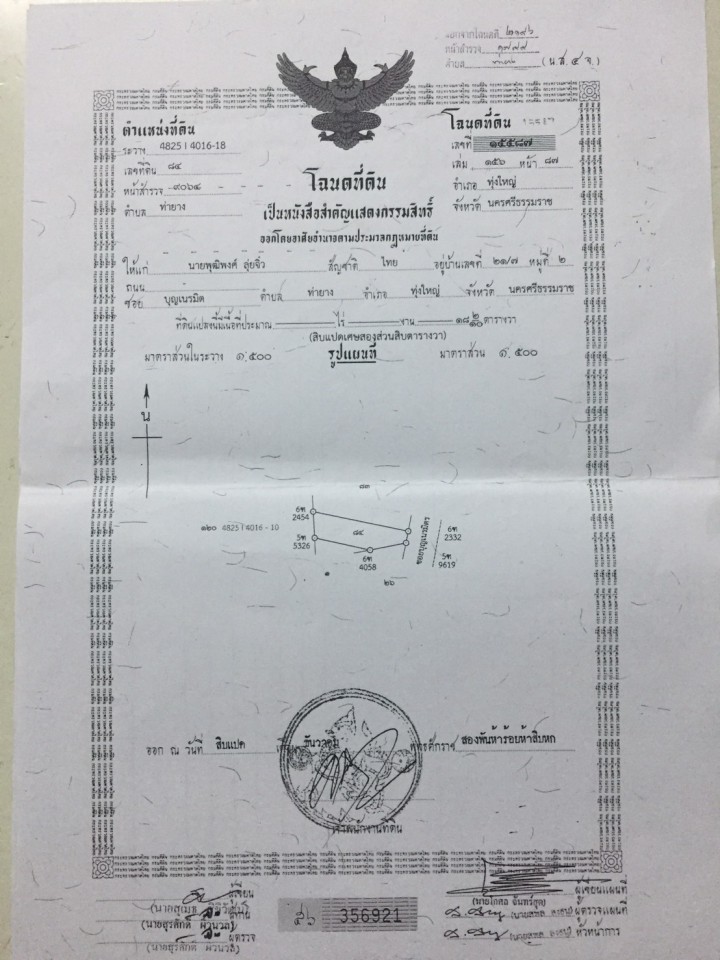 ออกจากโฉนดที่ ๒๑๙๖
หน้าสำรวจ ๑๗๗๗
ตำบล (น.ส. ๔ จ.)
ตำแหน่งที่ดิน
ระวาง 4825 I 4016-18
เลขที่ดิน ๘๔
หน้าสำรวจ ๙๐๖๔
ตำบล ท่ายาง
โฉนดที่ดิน
เลขที่ ๑๕๕๘๗
เล่ม ๑๕๖ หน้า ๘๗
อำเภอ ทุ่งใหญ่
จังหวัด นครศรีธรรมราช
โฉนดที่ดิน
เป็นหนังสือสำคัญแสดงกรรมสิทธิ์
ออกโดยอาศัยอำนาจตามประมวลกฎหมายที่ดิน
ให้แก่ นายพุฒิพงศ์ ลุ่ยจิ๋ว สัญชาติ ไทย อยู่บ้านเลขที่ ๒๑/๗ หมู่ที่ ๒
ถนน
ซอย บุญเนรมิต ตำบล ท่ายาง อำเภอ ทุ่งใหญ่ จังหวัด นครศรีธรรมราช
ที่ดินแปลงนี้มีเนื้อที่ประมาณ ไร่ งาน ๑๘ ๒/๑๐ ตารางวา
(สิบแปดเศษสองส่วนสิบตารางวา)
มาตราส่วนในระวาง ๑:๕๐๐ รูปแผนที่ มาตราส่วน ๑:๕๐๐
น
๘๓
6ฑ
2454
๘๔
๑๒๐ 4825 I 4016 - 10
5ฑ
5326
6ฑ
4058
ซอยบุญเนรมิตร
6ฑ
2332
5ฑ
9619
๒๖
ออก ณ วันที่ สิบแปด เดือน ธันวาคม พุทธศักราช สองพันห้าร้อยห้าสิบหก
เจ้าพนักงานที่ดิน
ผู้เขียน
ผู้ตรวจ
(นายสุรศักดิ์ ผิวนวล)
๕๖ 356921
ผู้เขียนแผนที่
(นายโกศล จันทร์ชุม)
ผู้ตรวจแผนที่
หัวหน้าการ